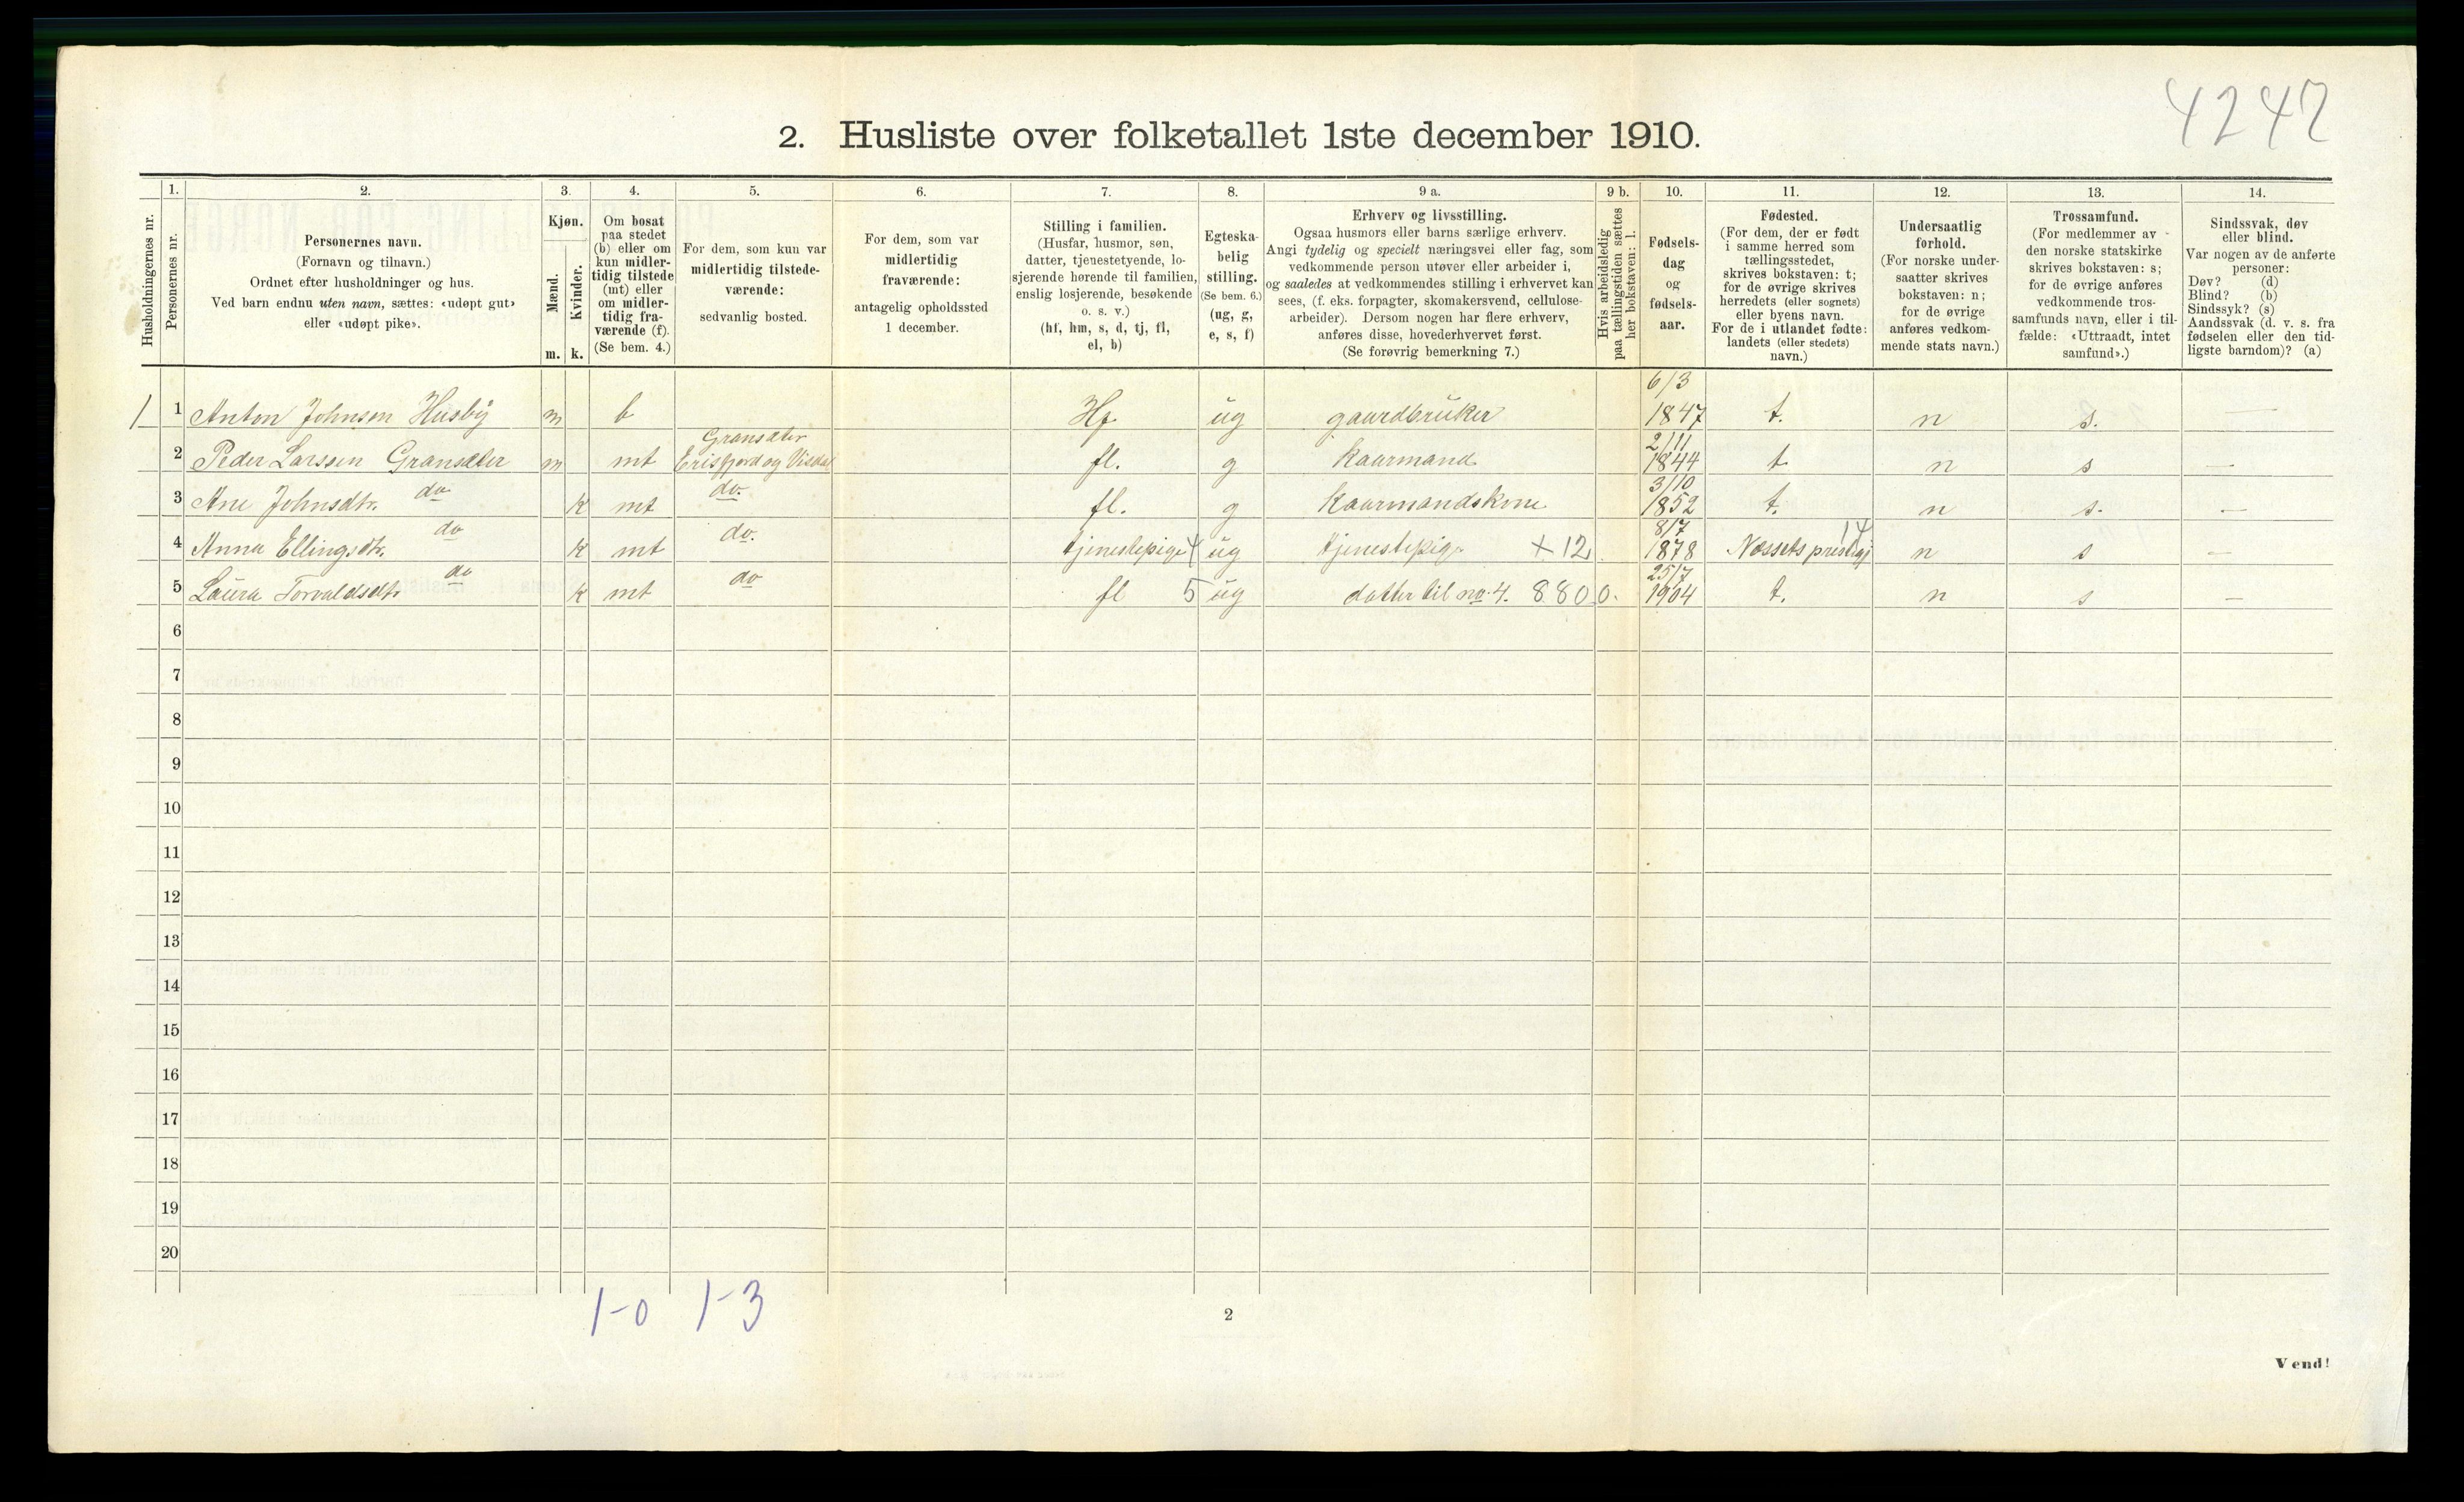 4242
2. Husliste over folketallet 1ste december 1910.
1. 2. 3. 4. 5. 6. 7. 8. 9 a. 9 b. 10. 11. 12. 13. 14.
Husholdningernes nr.
Personernes nr.
Personernes navn.
(Fornavn og tilnavn.)
Ordnet efter husholdninger og hus.
Ved barn endnu uten navn, sættes: «udøpt gut»
eller «udøpt pike».
Kjøn.
Mænd.
Kvinder.
m. k.
Om bosat
paa stedet
(b) eller om
kun midler-
tidig tilstede
(mt) eller
om midler-
tidig fra-
værende (f).
(Se bem. 4.)
For dem, som kun var
midlertidig tilstede-
værende:
sedvanlig bosted.
For dem, som var
midlertidig
fraværende:
antagelig opholdssted
1 december.
Stilling i familien.
(Husfar, husmor, søn,
datter, tjenestetyende, lo-
sjerende hørende til familien,
enslig losjerende, besøkende
o. s. v.)
(hf, hm, s, d, tj, fl,
el, b)
Egteska-
belig
stilling.
(Se bem. 6.)
(ug, g,
e, s, f)
Erhverv og livsstilling.
Ogsaa husmors eller barns særlige erhverv.
Angi tydelig og specielt næringsvei eller fag, som
vedkommende person utøver eller arbeider i,
og saaledes at vedkommendes stilling i erhvervet kan
sees, (f. eks. forpagter, skomakersvend, cellulose-
arbeider). Dersom nogen har flere erhverv,
anføres disse, hovederhvervet først.
(Se forøvrig bemerkning 7.)
Hvis arbeidsledig
paa tællingstiden sættes
her bokstaven: l.
Fødsels-
dag
og
fødsels-
aar.
Fødested.
(For dem, der er født
i samme herred som
tællingsstedet,
skrives bokstaven: t;
for de øvrige skrives
herredets (eller sognets)
eller byens navn.
For de i utlandet fødte:
landets (eller stedets)
navn.)
Undersaatlig
forhold.
(For norske under-
saatter skrives
bokstaven: n;
for de øvrige
anføres vedkom-
mende stats navn.)
Trossamfund.
(For medlemmer av
den norske statskirke
skrives bokstaven: s;
for de øvrige anføres
vedkommende tros-
samfunds navn, eller i til-
fælde: «Uttraadt, intet
samfund».)
Sindssvak, døv
eller blind.
Var nogen av de anførte
personer:
Døv? (d)
Blind? (b)
Sindssyk? (s)
Aandssvak (d. v. s. fra
fødselen eller den tid-
ligste barndom)? (a)
1 1 Anton Johnsen Husby m b Hf. ug gaardbruker 6/3 1847 t. n s. —
2 Peder Larssen Gransæter m mt Gransæter Erisfjord og Visdal fl. g Kaarmand 2/11 1844 t n s —
3 Ane Johnsdtr. do k mt do. fl. g Kaarmandskone 3/10 1852 t. n s. —
4 Anna Ellingsdtr. do k mt do. tjenestepige 4 ug tjenestepige +12 8/7 1878 Nessets prestegj 14 n s —
5 Laura Torvaldsdtr do k mt do fl 5 ug datter til no. 4. 8800. 25/7 1904 t. n s —
6
7
8
9
10
11
12
13
14
15
16
17
18
19
20
1-0 1-3
2
Vend!